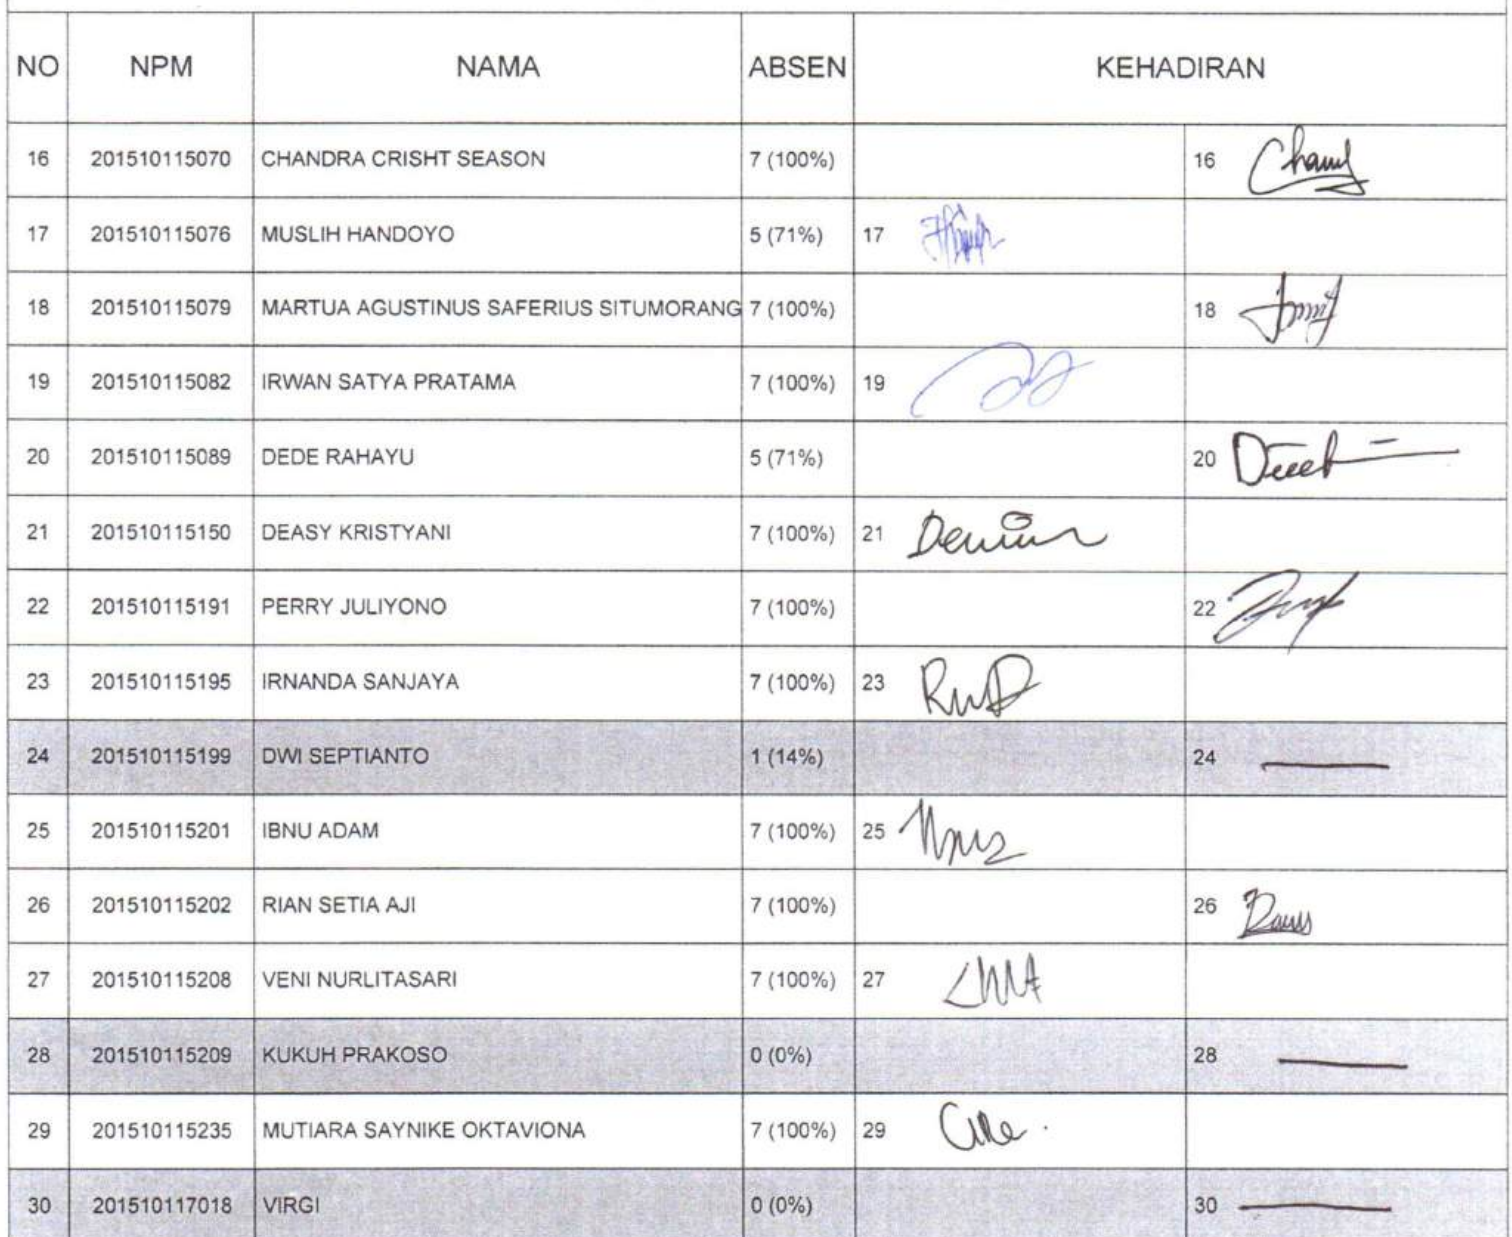 NO NPM NAMA ABSEN KEHADIRAN
16 201510115070 CHANDRA CRISHT SEASON 7 (100%) 16
17 201510115076 MUSLIH HANDOYO 5 (71%) 17
18 201510115079 MARTUA AGUSTINUS SAFERIUS SITUMORANG 7 (100%) 18
19 201510115082 IRWAN SATYA PRATAMA 7 (100%) 19
20 201510115089 DEDE RAHAYU 5 (71%) 20
21 201510115150 DEASY KRISTYANI 7 (100%) 21
22 201510115191 PERRY JULIYONO 7 (100%) 22
23 201510115195 IRNANDA SANJAYA 7 (100%) 23
24 201510115199 DWI SEPTIANTO 1 (14%) 24
25 201510115201 IBNU ADAM 7 (100%) 25
26 201510115202 RIAN SETIA AJI 7 (100%) 26
27 201510115208 VENI NURLITASARI 7 (100%) 27
28 201510115209 KUKUH PRAKOSO 0 (0%) 28
29 201510115235 MUTIARA SAYNIKE OKTAVIONA 7 (100%) 29
30 201510117018 VIRGI 0 (0%) 30